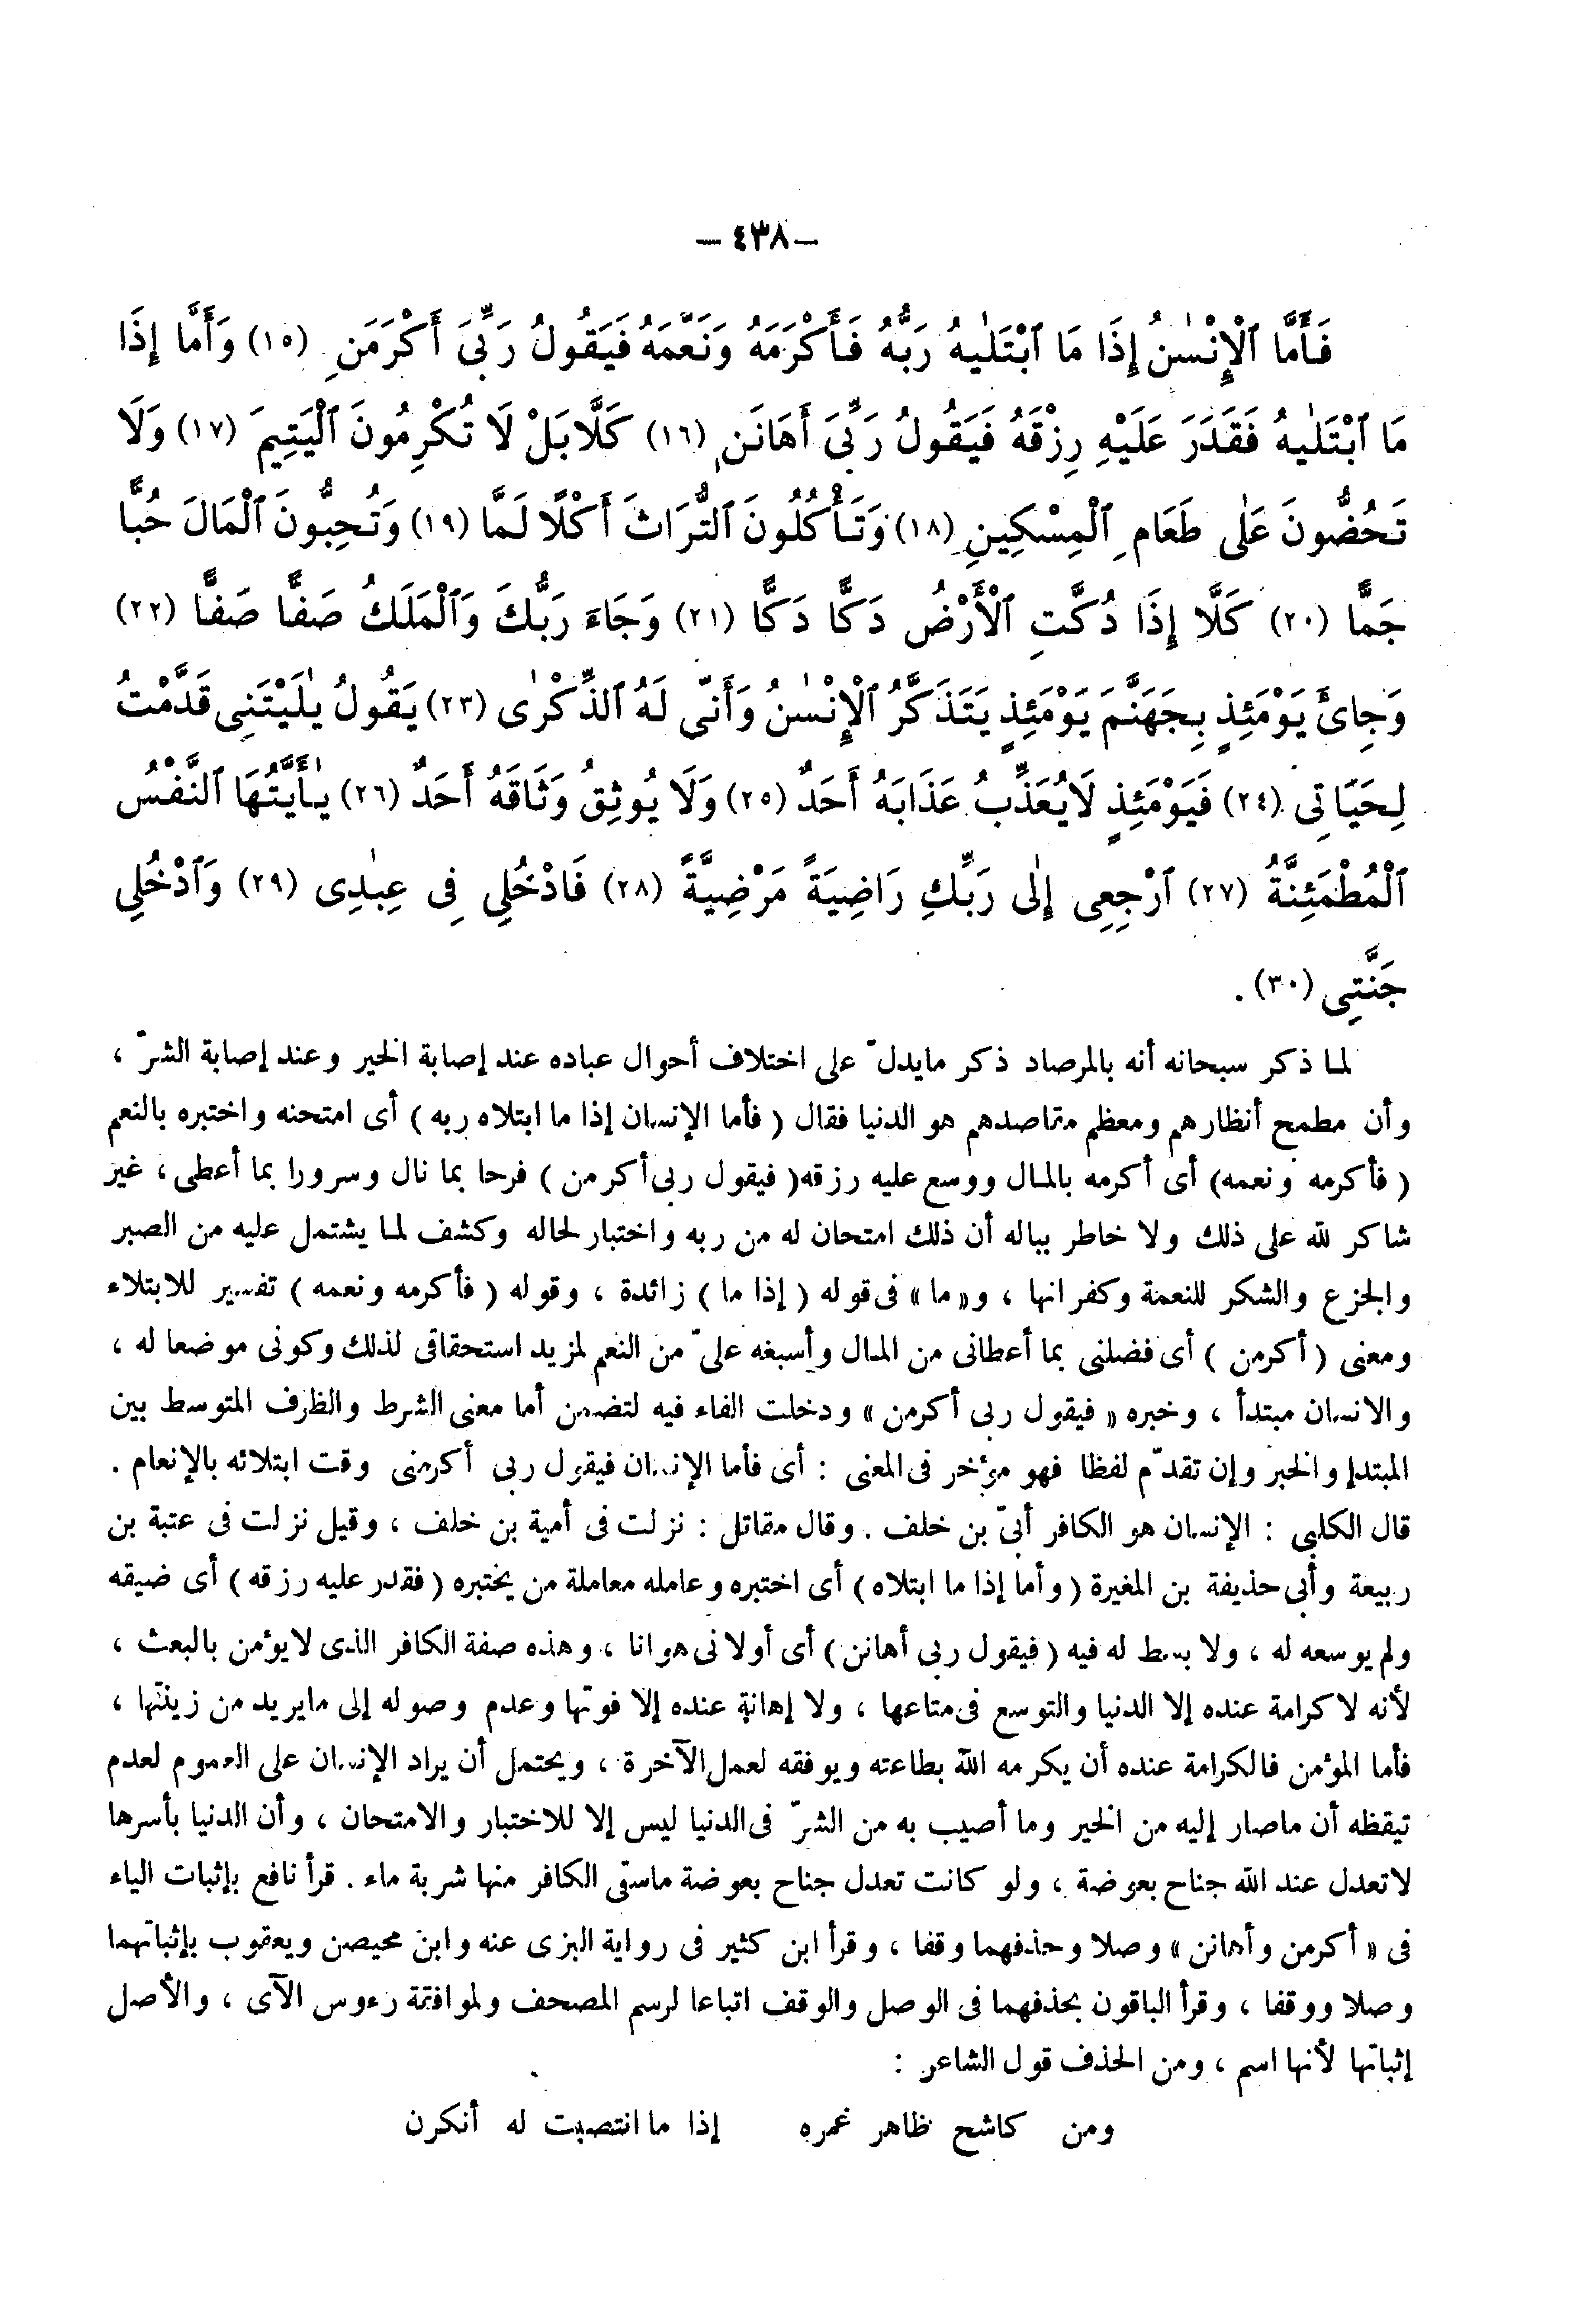 – ٤٣٨ –
فَأَمَّا ٱلْإِنْسٰنُ إِذَا مَا ٱبْتَلٰيهُ رَبُّهُ فَأَكْرَمَهُ وَنَعَّمَهُ فَيَقُولُ رَبِّىَ أَكْرَمَنِ (١٥) وَأَمَّا إِذَا
مَا ٱبْتَلٰيهُ فَقَدَرَ عَلَيْهِ رِزْقَهُ فَيَقُولُ رَبِّىَ أَهَانَنِ (١٦) كَلَّا بَلْ لَا تُكْرِمُونَ ٱلْيَتِيمَ (١٧) وَلَا
تَحُضُّونَ عَلٰى طَعَامِ ٱلْمِسْكِينِ (١٨) وَتَأْكُلُونَ ٱلتُّرَاثَ أَكْلًا لَمَّا (١٩) وَتُحِبُّونَ ٱلْمَالَ حُبًّا
جَمًّا (٢٠) كَلَّا إِذَا دُكَّتِ ٱلْأَرْضُ دَكًّا دَكًّا (٢١) وَجَاءَ رَبُّكَ وَٱلْمَلَكُ صَفًّا صَفًّا (٢٢)
وَجِائَ يَوْمَئِذٍ بِجَهَنَّمَ يَوْمَئِذٍ يَتَذَكَّرُ ٱلْإِنْسٰنُ وَأَنّٰى لَهُ ٱلذِّكْرٰى (٢٣) يَقُولُ يٰلَيْتَنِى قَدَّمْتُ
لِحَيَاتِى (٢٤) فَيَوْمَئِذٍ لَا يُعَذِّبُ عَذَابَهُ أَحَدٌ (٢٥) وَلَا يُوثِقُ وَثَاقَهُ أَحَدٌ (٢٦) يٰأَيَّتُهَا ٱلنَّفْسُ
ٱلْمُطْمَئِنَّةُ (٢٧) ٱرْجِعِى إِلٰى رَبِّكِ رَاضِيَةً مَرْضِيَّةً (٢٨) فَادْخُلِي فِى عِبٰدِى (٢٩) وَٱدْخُلِي
جَنَّتِى (٣٠) .
لما ذكر سبحانه أنه بالمرصاد ذكر مايدلّ على اختلاف أحوال عباده عند إصابة الخير وعند إصابة الشرّ ،
وأن مطمح أنظارهم ومعظم مقاصدهم هو الدنيا فقال ( فأما الإنسان إذا ما ابتلاه ربه ) أى امتحنه واختبره بالنعم
( فأكرمه ونعمه) أى أكرمه بالمال ووسع عليه رزقه( فيقول ربى أكرمن ) فرحا بما نال وسرورا بما أعطى ، غير
شاكر لله على ذلك ولا خاطر بباله أن ذلك امتحان له من ربه واختبار لحاله وكشف لما يشتمل عليه من الصبر
والجزع والشكر للنعمة وكفرانها ، و« ما » فى قوله ( إذا ما ) زائدة ، وقوله ( فأكرمه ونعمه ) تفسير للابتلاء
ومعنى ( أكرمن ) أى فضلنى بما أعطانى من المال وأسبغه علىّ من النعم لمزيد استحقاقى لذلك وكونى موضعا له ،
والانسان مبتدأ ، وخبره « فيقول ربى أكرمن » ودخلت الفاء فيه لتضمن أما معنى الشرط والظرف المتوسط بين
المبتدإ والخبر وإن تقدّم لفظا فهو مؤخر فى المعنى : أى فأما الإنسان فيقول ربى أكرمنى وقت ابتلائه بالإنعام .
قال الكلبى : الإنسان هو الكافر أبىّ بن خلف . وقال مقاتل : نزلت فى أمية بن خلف ، وقيل نزلت فى عتبة بن
ربيعة وأبى حذيفة بن المغيرة ( وأما إذا ما ابتلاه ) أى اختبره وعامله معاملة من يختبره ( فقدر عليه رزقه ) أى ضيقه
ولم يوسعه له ، ولا بسط له فيه ( فيقول ربى أهانن ) أى أولانى هوانا ، وهذه صفة الكافر الذى لايؤمن بالبعث ،
لأنه لا كرامة عنده إلا الدنيا والتوسع فى متاعها ، ولا إهانة عنده إلا فوتها وعدم وصوله إلى مايريد من زينتها ،
فأما المؤمن فالكرامة عنده أن يكرمه الله بطاعته ويوفقه لعمل الآخرة ، ويحتمل أن يراد الإنسان على العموم لعدم
تيقظه أن ماصار إليه من الخير وما أصيب به من الشرّ فى الدنيا ليس إلا للاختبار والامتحان ، وأن الدنيا بأسرها
لاتعدل عند الله جناح بعوضة ، ولو كانت تعدل جناح بعوضة ماسقى الكافر منها شربة ماء . قرأ نافع بإثبات الياء
فى « أكرمن وأهانن » وصلا وحذفهما وقفا ، وقرأ ابن كثير فى رواية البزى عنه وابن محيصن ويعقوب بإثباتهما
وصلا ووقفا ، وقرأ الباقون بحذفهما فى الوصل والوقف اتباعا لرسم المصحف ولموافقة رءوس الآى ، والأصل
إثباتها لأنها اسم ، ومن الحذف قول الشاعر :
ومن كاشح ظاهر غمره إذا ما انتصبت له أنكرن